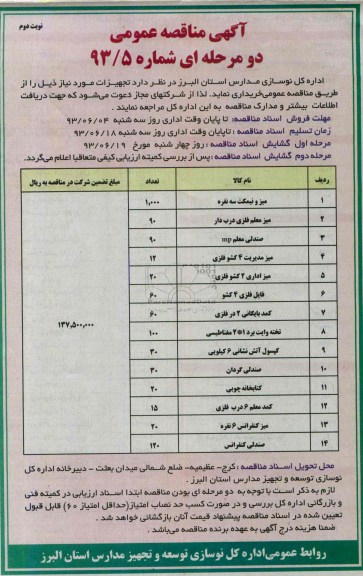 نوبت دوم
آگهی مناقصه عمومی
دو مرحله ای شماره ۹۳/۵
اداره کل نوسازی مدارس استان البرز در نظر دارد تجهیزات مورد نیاز ذیل را از
طریق مناقصه عمومی خریداری نماید. لذا از شرکتهای مجاز دعوت می‌شود که جهت دریافت
اطلاعات بیشتر و مدارک مناقصه به این اداره کل مراجعه نمایند.
مهلت فروش اسناد مناقصه: تا پایان وقت اداری روز سه شنبه ۹۳/۰۶/۰۴
زمان تسلیم اسناد مناقصه: تاپایان وقت اداری روز سه شنبه ۹۳/۰۶/۱۸
مرحله اول گشایش اسناد مناقصه: روز چهار شنبه مورخ ۹۳/۰۶/۱۹
مرحله دوم گشایش اسناد مناقصه: پس از بررسی کمیته ارزیابی کیفی متعاقبا اعلام می‌گردد.
ردیف نام کالا تعداد مبلغ تضمین شرکت در مناقصه به ریال
۱ میز و نیمکت سه نفره ۱,۰۰۰
۲ میز معلم فلزی درب دار ۹۰
۳ صندلی معلم mp ۹۰
۴ میز مدیریت ۴ کشو فلزی ۱۲
۵ میز اداری ۲ کشو فلزی ۲۰
۶ فایل فلزی ۴ کشو ۶۰
۷ کمد بایگانی ۲ در فلزی ۶۰
۸ تخته وایت برد ۱*۲ مغناطیسی ۱۰۰
۹ کپسول آتش نشانی ۶ کیلویی ۳۰
۱۰ صندلی گردان ۳۰
۱۱ کتابخانه چوبی ۲۰
۱۲ کمد معلم ۶ درب فلزی ۱۵
۱۳ میز کنفرانس ۶ نفره ۲۰
۱۴ صندلی کنفرانس ۱۲۰
۱۳۷,۵۰۰,۰۰۰
محل تحویل اسناد مناقصه: کرج- عظیمیه- ضلع شمالی میدان بعثت - دبیرخانه اداره کل
نوسازی توسعه و تجهیز مدارس استان البرز.
لازم به ذکر است با توجه به دو مرحله ای بودن مناقصه ابتدا اسناد ارزیابی در کمیته فنی
و بازرگانی اداره کل بررسی و در صورت کسب حد نصاب امتیاز(حداقل امتیاز ۶۰) قابل قبول
تعیین شده در اسناد مناقصه پیشنهاد قیمت آنان بازگشائی خواهد شد.
ضمنا هزینه درج آگهی به عهده برنده مناقصه می‌باشد.
روابط عمومی اداره کل نوسازی توسعه و تجهیز مدارس استان البرز